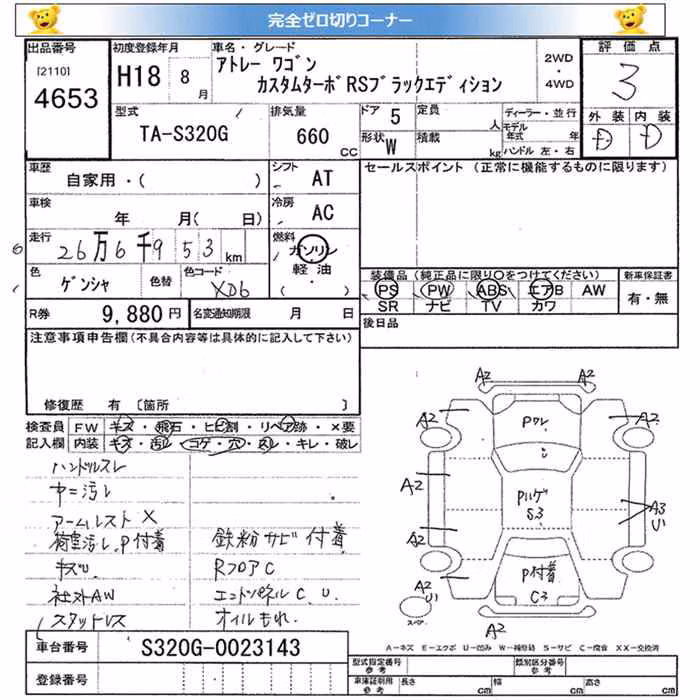 完全ゼロ切りコーナー
出品番号 初度登録年月 車名・グレード 評価点
[2110] 4653 H18 8月 アトレー ワゴン 2WD・4WD 3
カスタムターボRSブラックエディション
型式 排気量 ドア 5 定員 人 ディーラー・並行 外装 内装
TA-S320G 660 CC 形状 W 積載 kg モデル年式 年 D D
ハンドル 左・右
車歴 シフト セールスポイント (正常に機能するものに限ります)
自家用・( ) AT
車検 冷房
年 月( 日) AC
走行 燃料
26万6千953km ガソリン
軽油
( ・ )
色 色替 色コード 装備品 (純正品に限り○をつけてください) 新車保証書
ゲンシャ XD6 PS PW ABS エアB AW 有・無
SR ナビ TV カワ
R券 9,880円 名変通知期限 月 日 後日品
注意事項申告欄(不具合内容等は具体的に記入して下さい)
修復歴 有 〔箇所 〕
検査員 FW キズ・飛石・ヒビ割・リペア跡・×要
記入欄 内装 キズ・汚レ・コゲ・穴・スレ・キレ・破レ
ハンドルスレ
中=汚レ
アームレスト X
荷室汚レ、P付着 鉄粉サビ付着
キズU RフロアC
社外AW エンドパネルC、U
スタッドレス オイルもれ
車台番号 S320G-0023143
登録番号
A2 A2
A2 Pワレ A2
A2 Pハゲ S3 A3 U1
A2
A2 U1 P付着 C3
スペア A2
A-キズ E-エクボ U-凹み W-補修跡 S-サビ C-腐食 XX-交換済
型式指定番号 参考 類別区分番号 参考
車庫証明用 参考 長さ cm 幅 cm 高さ cm